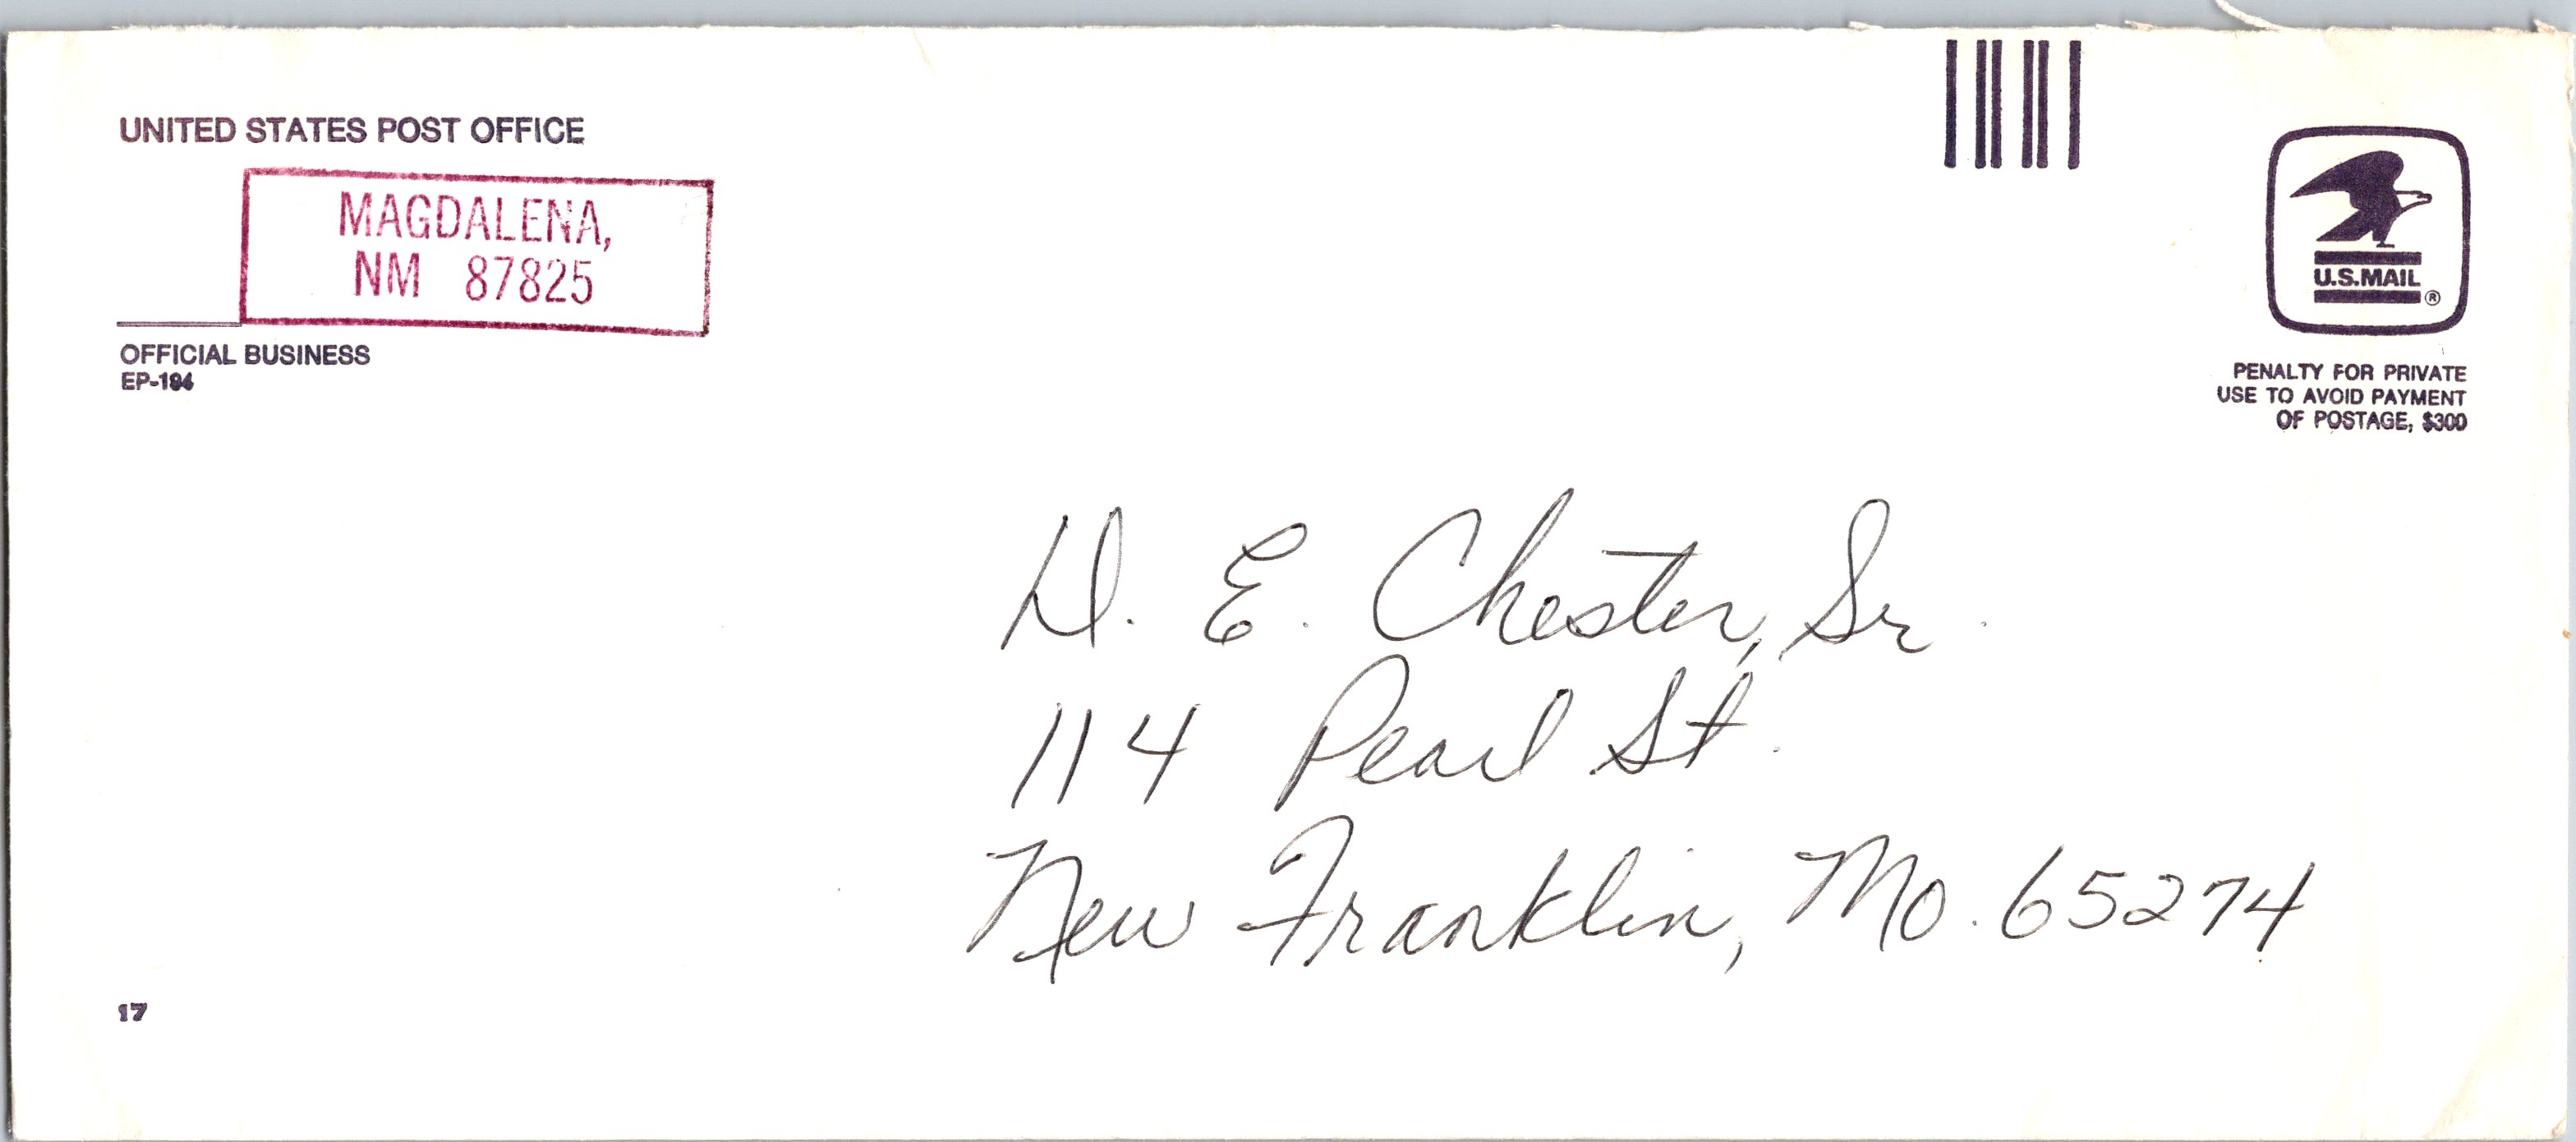 UNITED STATES POST OFFICE
MAGDALENA,
NM 87825
OFFICIAL BUSINESS
EP-184
U.S.MAIL ®
PENALTY FOR PRIVATE
USE TO AVOID PAYMENT
OF POSTAGE, $300
H. E. Chester, Sr.
114 Pearl St.
New Franklin, Mo. 65274
17